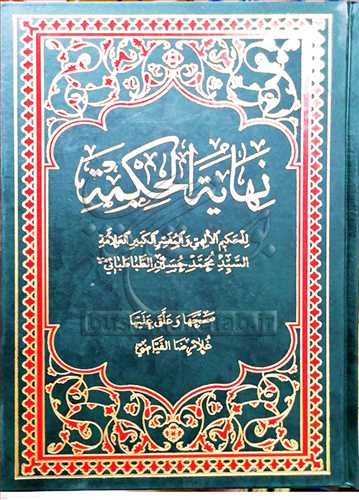 نهاية الحكمة
للحكيم الإلهي والمفسر الكبير العلامة
السيد محمد حسين الطباطبائي
صححها وعلق عليها
غلامرضا الفياضي